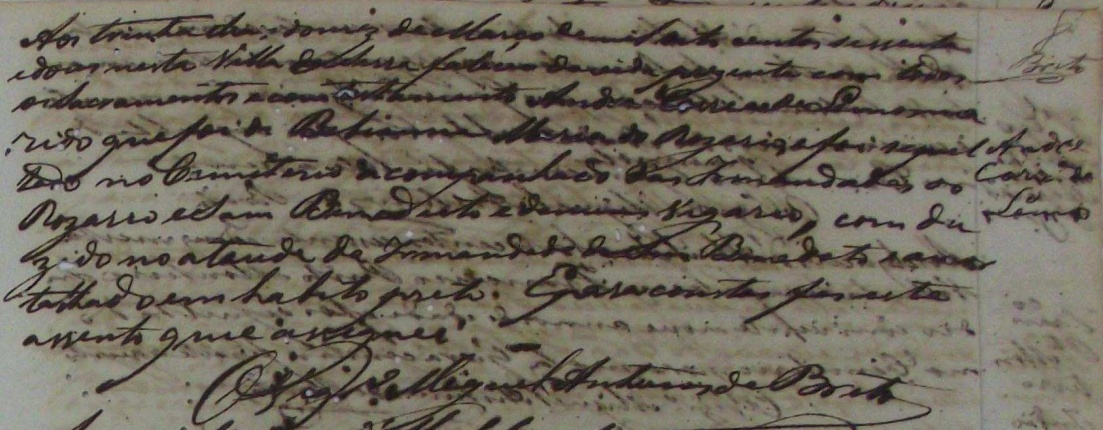 Aos trinta dias do mez de Março de mil oito centos sessenta
e dous nesta Villa da Serra faleceu da vida prezente com todos
os Sacramentos e com testamento Andre Correa de Lemos ma
rido que foi de Maria do Rozario, e foi sepul
tado no Cemiterio acompanhado das Irmandades do
Rozario e Sam Benedicto e de mim Vigario, con du
zido no ataude da Irmandade de Sam Benedicto e amor
talhado em habito preto. E para constar fiz este
assento que assignei
O Vigr.o Miguel Antunes de Brito
Brito
Andre
Corrª de
Lemos